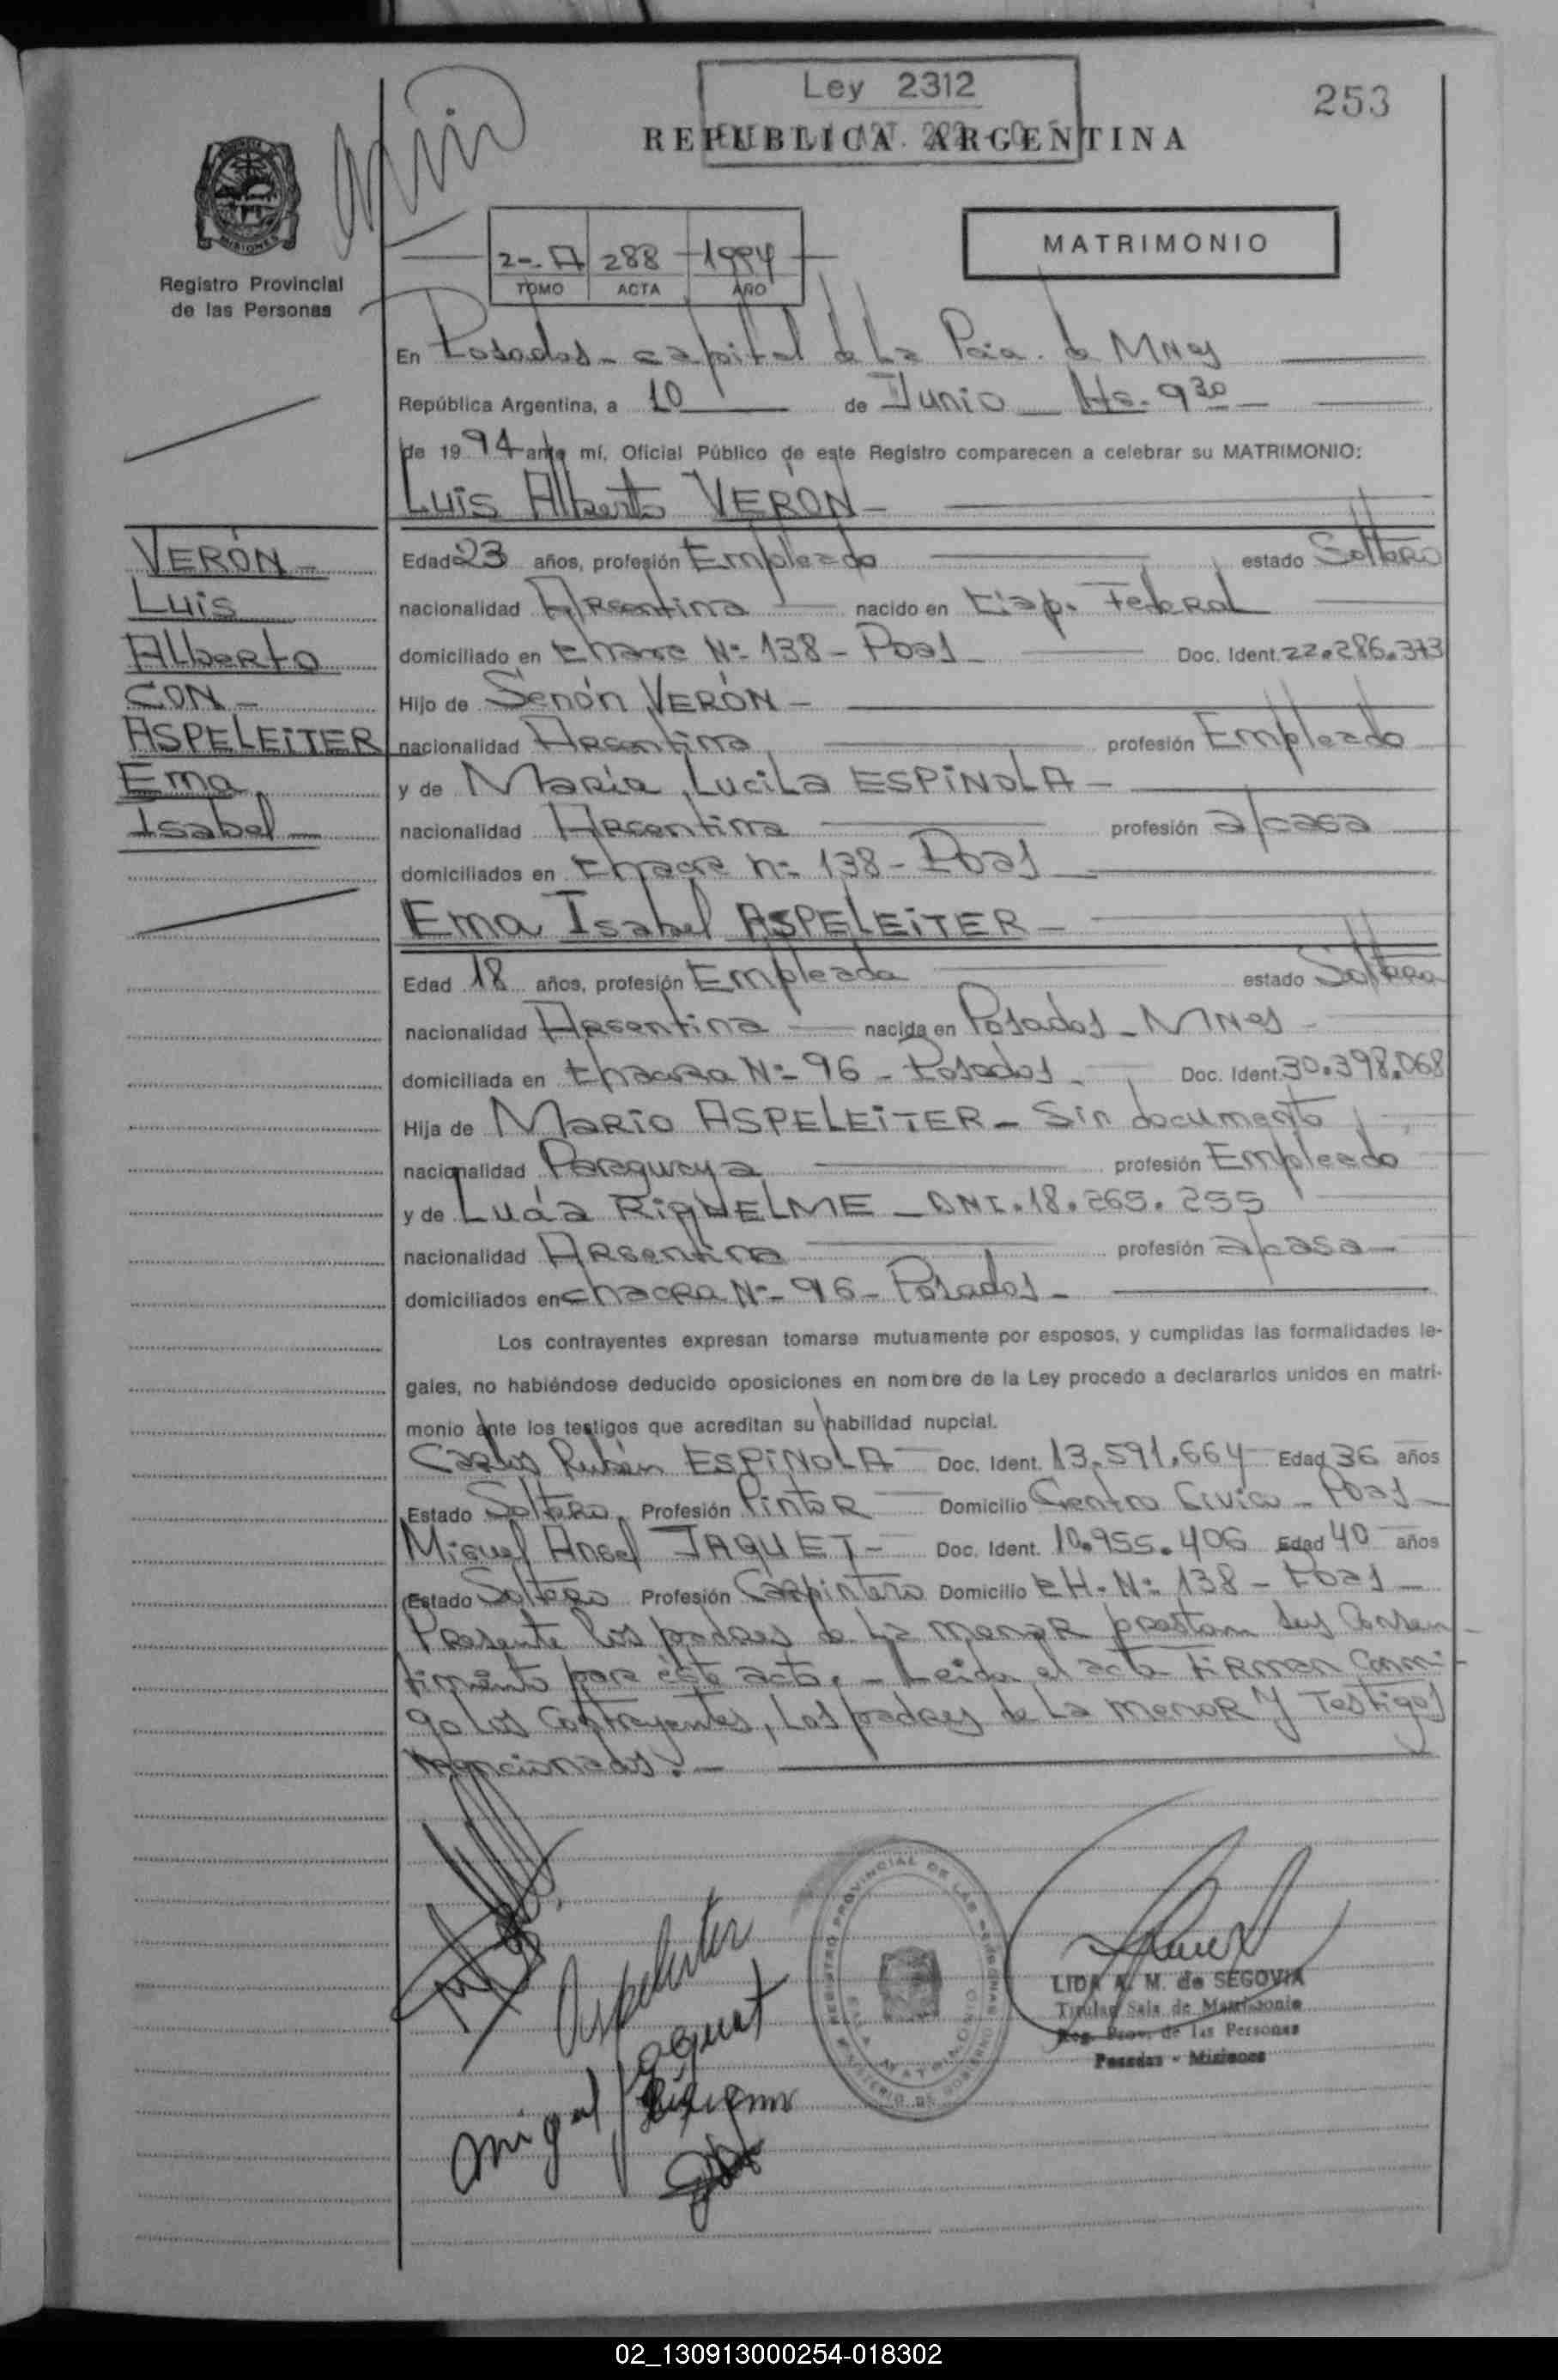 Ley 2312
253
REPUBLICA ARGENTINA
MISIONES
Registro Provincial
de las Personas
2-A 288 1994
TOMO ACTA AÑO
MATRIMONIO
En Posadas - capital de La Pcia. de MNes
República Argentina, a 10 de Junio Hs. 9 30
de 19 94 ante mí, Oficial Público de este Registro comparecen a celebrar su MATRIMONIO:
Luis Alberto VERÓN
VERÓN
Luis
Alberto
CON
ASPELEITER
Ema
Isabel
Edad 23 años, profesión Empleado estado Soltero
nacionalidad Argentina nacido en Cap. Federal
domiciliado en Chacra Nº 138 - Pdas Doc. Ident. 22.286.373
Hijo de Senón VERÓN
nacionalidad Argentina profesión Empleado
y de María Lucila ESPINOLA
nacionalidad Argentina profesión a/casa
domiciliados en Chacra nº 138 - Pdas
Ema Isabel ASPELEITER
Edad 18 años, profesión Empleada estado Soltera
nacionalidad Argentina nacida en Posadas - MNes
domiciliada en Chacra Nº 96 - Posadas Doc. Ident. 30.398.068
Hija de Mario ASPELEITER - Sin documento
nacionalidad Paraguaya profesión Empleado
y de RIQUELME - DNI. 18.265.255
nacionalidad Argentina profesión a/casa
domiciliados en chacra Nº 96 - Posadas
Los contrayentes expresan tomarse mutuamente por esposos, y cumplidas las formalidades le-
gales, no habiéndose deducido oposiciones en nombre de la Ley procedo a declararlos unidos en matri-
monio ante los testigos que acreditan su habilidad nupcial.
Carlos Rubén ESPINOLA Doc. Ident. 13.591.664 Edad 36 años
Estado Soltero Profesión Pintor Domicilio Centro Civico - Pdas
Miguel Angel JAQUET Doc. Ident. 10.955.406 Edad 40 años
Estado Soltero Profesión Carpintero Domicilio CH. Nº 138 - Pdas
Presente los padres de la menor prestan sus Consen
timiento para éste acto. - Leida el acta firman Conmi-
go los Contrayentes, Los padres de La menor y Testigos
mencionados.
Aspeleiter
Miguel Jaquet
REGISTRO PROVINCIAL DE LAS PERSONAS
MINISTERIO DE GOBIERNO
SALA MATRIMONIO
LIDA A. M. de SEGOVIA
Titular Sala de Matrimonio
Reg. Prov. de las Personas
Posadas - Misiones
02_130913000254-018302